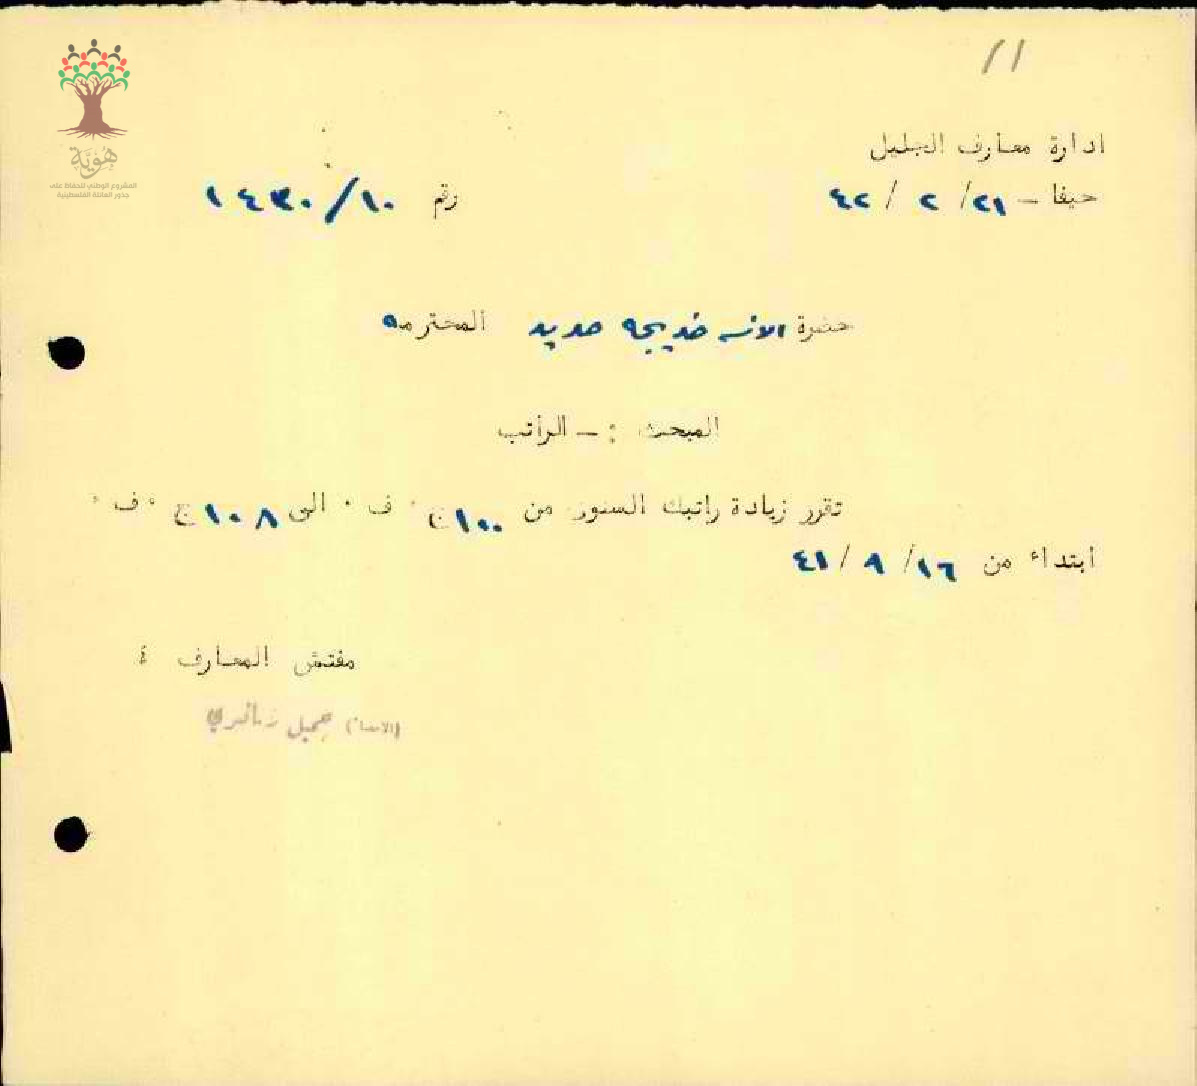 ١١
هوية
المشروع الوطني للحفاظ على
جذور العائلة الفلسطينية
ادارة معارف الجليل
حيفا – ٢١/ ٢ / ٤٢ رقم ١٤٣٠/١٠
حضرة الانسه خديجه حديد المحترمه
المبحث : – الراتب
تقرر زيادة راتبك السنوى من ١٠٠ ج ٠ ف ٠ الى ١٠٨ ج ٠ ف ٠
ابتداء من ١٦/ ٩ / ٤١
مفتش المعارف
(الامضاء) جميل